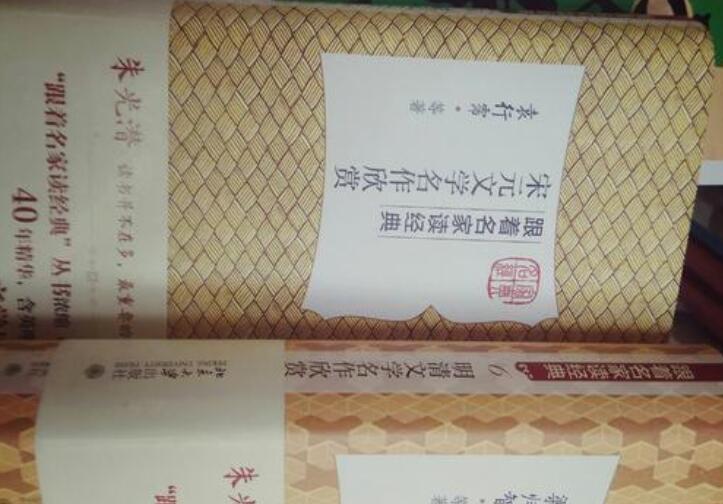 跟着名家读经典
宋元文学名作欣赏
袁行霈·等著
朱光潜
读书并不在多，最重要的
“跟着名家读经典”丛书浓缩
40年精华，含英
跟着名家读经典
6
明清文学名作欣赏
北京大学出版社
PEKING UNIVERSITY PRESS
等著
朱光
“跟